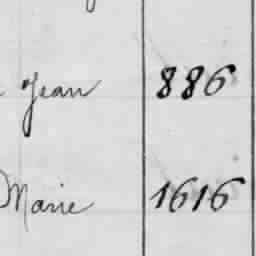 Jean 886
Marie 1616